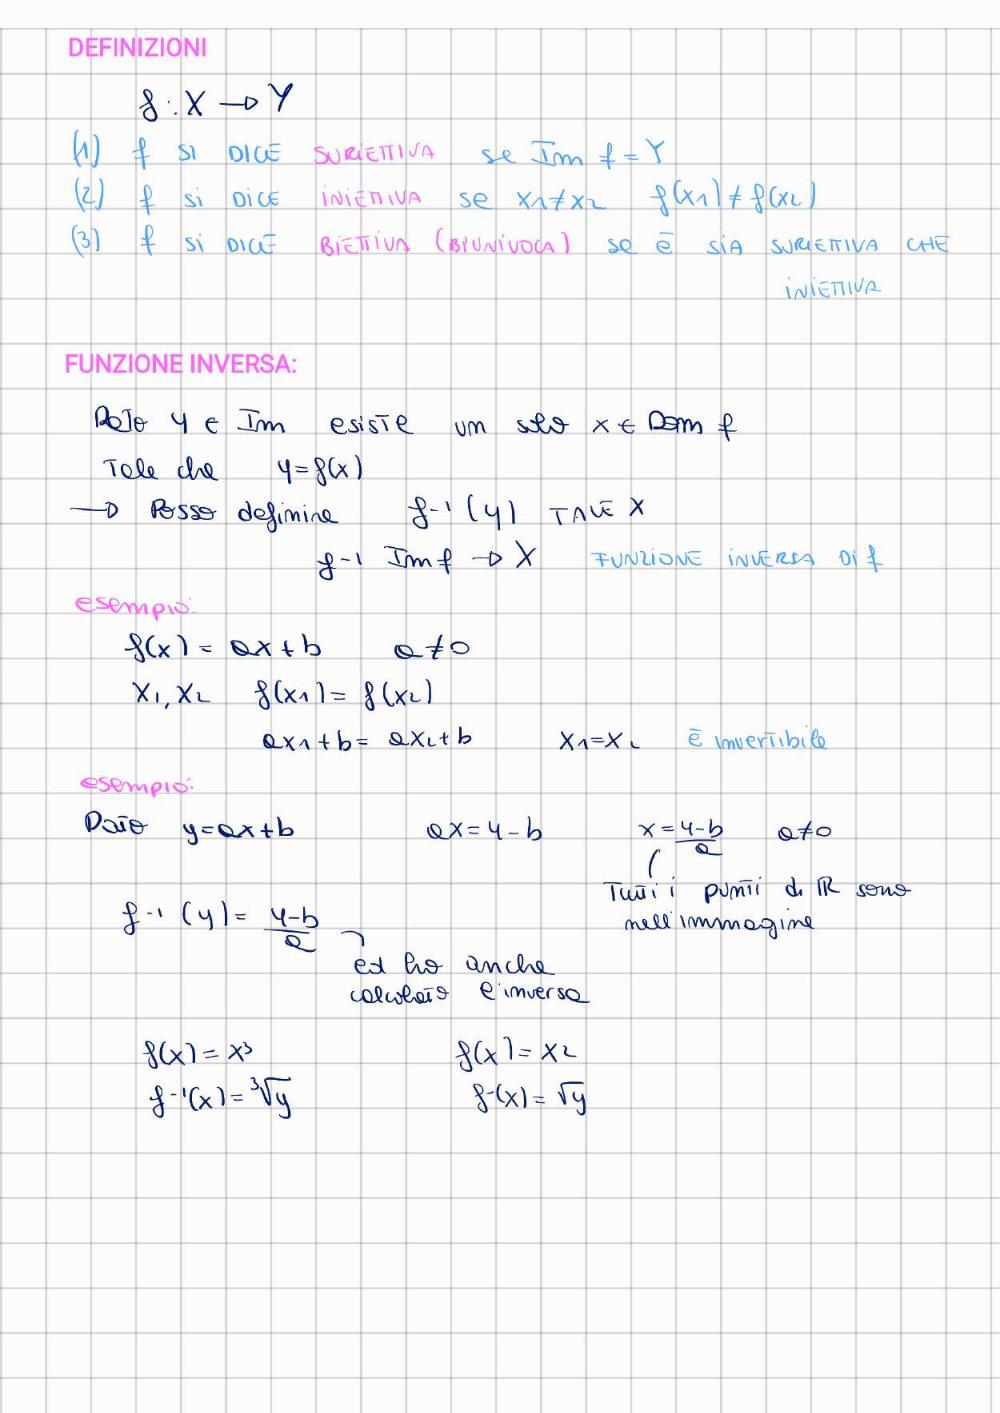 DEFINIZIONI
f : X → Y
(1) f SI DICE SURIETTIVA se Im f = Y
(2) f Si DiCE INIETTIVA se x1≠x2 f(x1) ≠ f(x2)
(3) f Si DICE BIETTIVA (BIUNIVOCA) se è SIA SURIETTIVA CHE
INIETTIVA
FUNZIONE INVERSA:
Dato y ∈ Im esiste un solo x ∈ Dom f
Tale che y=f(x)
→ Posso definire f-1 (y) TALE X
f-1 Im f → X FUNZIONE INVERSA DI f
esempio:
f(x) = ax + b a≠0
X1, X2 f(x1) = f(x2)
ax1 + b = ax2 + b x1=x2 è invertibile
esempio:
Dato y=ax+b ax = y - b x = y-b/a a≠0
Tutti i punti di ℝ sono
nell'immagine
f-1 (y) = y-b/a
ed ho anche
calcolato l'inversa
f(x) = x3 f(x) = x2
f-1(x) = 3√y f-(x) = √y